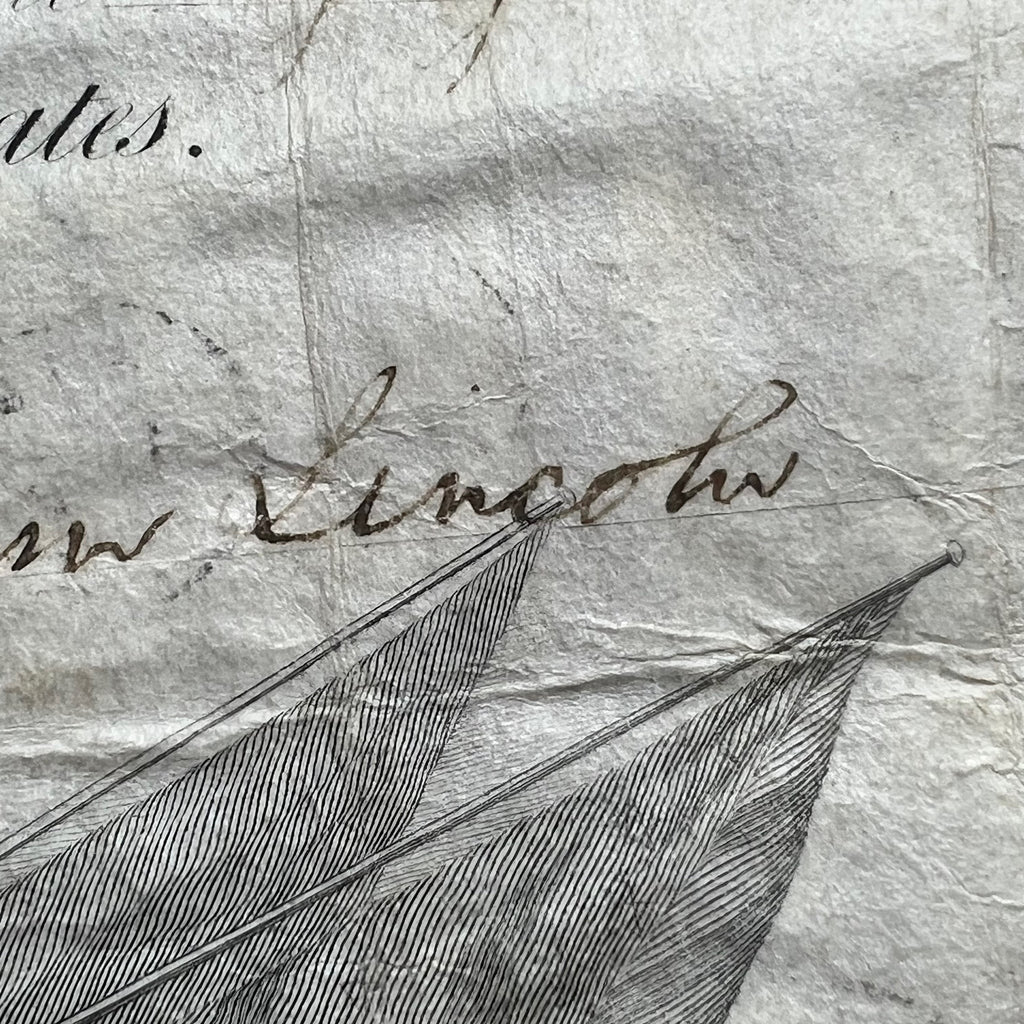 ates.
m Lincoln